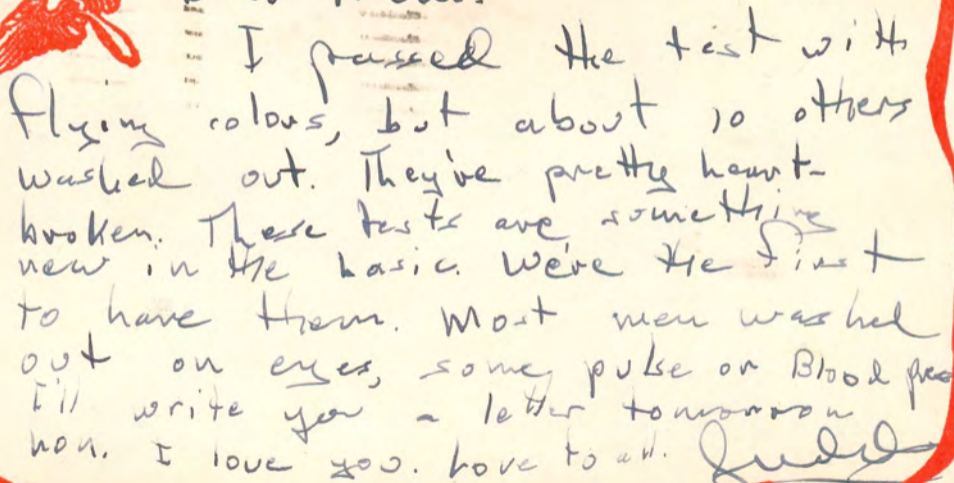 I passed the test with
flying colors, but about 10 others
washed out. They're pretty heart-
broken. These tests are something
new in the basic. We're the first
to have them. Most men washed
out on eyes, some pulse or Blood pres
I'll write you a letter tomorrow
hon. I love you. Love to all.